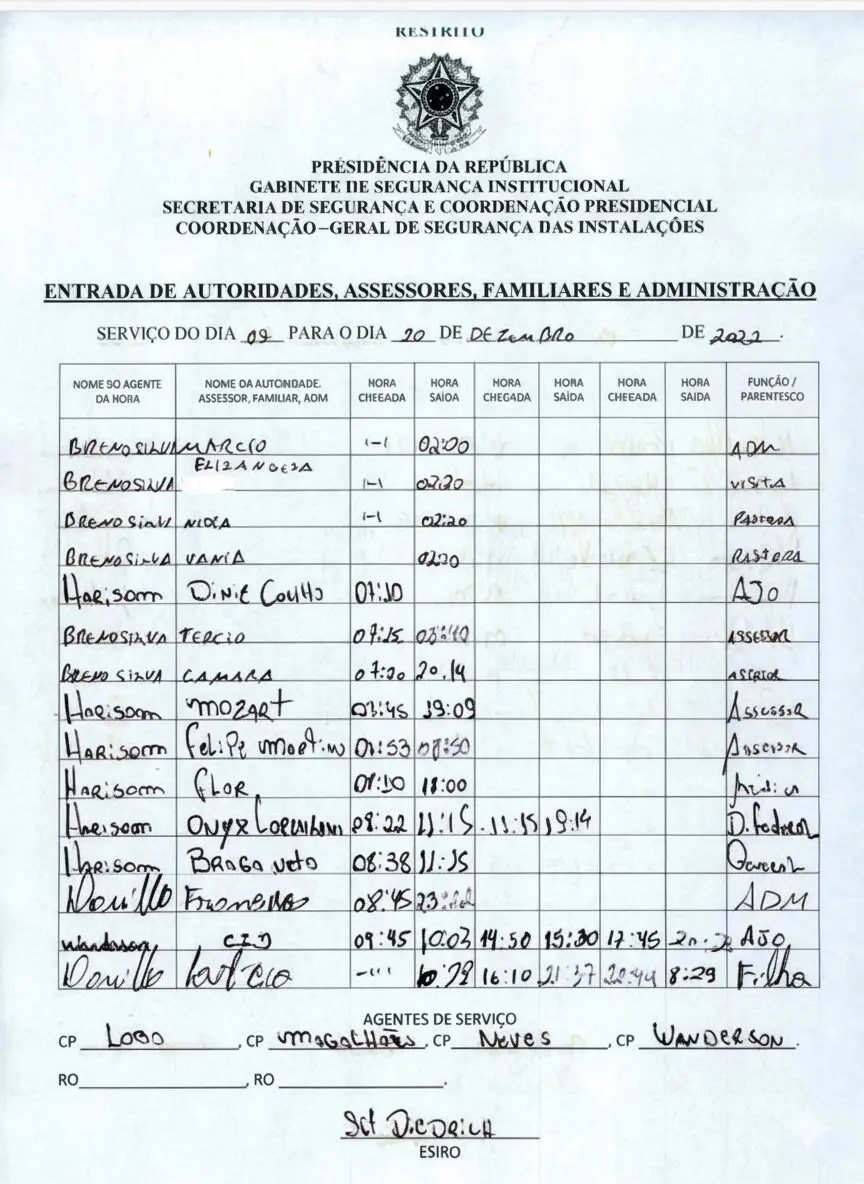 RESTRITO
PRÉSIDÊNCIA DA REPÚBLICA
GABINETE DE SEGURANÇA INSTITUCIONAL
SECRETARIA DE SEGURANÇA E COORDENAÇÃO PRESIDENCIAL
COORDENAÇÃO-GERAL DE SEGURANÇA DAS INSTALAÇÕES
ENTRADA DE AUTORIDADES, ASSESSORES, FAMILIARES E ADMINISTRAÇÃO
SERVIÇO DO DIA 09 PARA O DIA 20 DE DEZEMBRO DE 2022.
NOME SO AGENTE DA HORA NOME DA AUTONDADE. ASSESSOR, FAMILIAR, AOM HORA CHEEADA HORA SAÍOA HORA CHEGADA HORA SAÍDA HORA CHEEADA HORA SAIDA FUNÇÃO / PARENTESCO
BRENO SILVA MARCIO 02:00 ADM
BRENOSILVA ELIZANGEZA 02:20 VISITA
BRENO SILVA 02:20
BRENOSILVA VANIA 02:20
Harisom 07:10 AJO
BRENOSILVA TERCIO 07:15 ASSESSOR
BRENO SILVA CAMARA 07:20 20.14
Harisom MOZART 19:09 Assessor
HARisom Felipe Martins Assessor
HARisom FLOR 18:00
Harisom ONYX 08:22 11:15 11:15 19:14 D. Federal
Harisom BRAGA Neto 08:38 11:15
08:45 ADM
Wanderson CID 09:45 10:03 14:50 15:30 17:45 AJO
16:10 21:37 8:29 Filha
AGENTES DE SERVIÇO
CP LOBO, CP MAGALHÃES, CP NEVES, CP WANDERSON.
RO, RO.
Sgt DIEDRICH
ESIRO